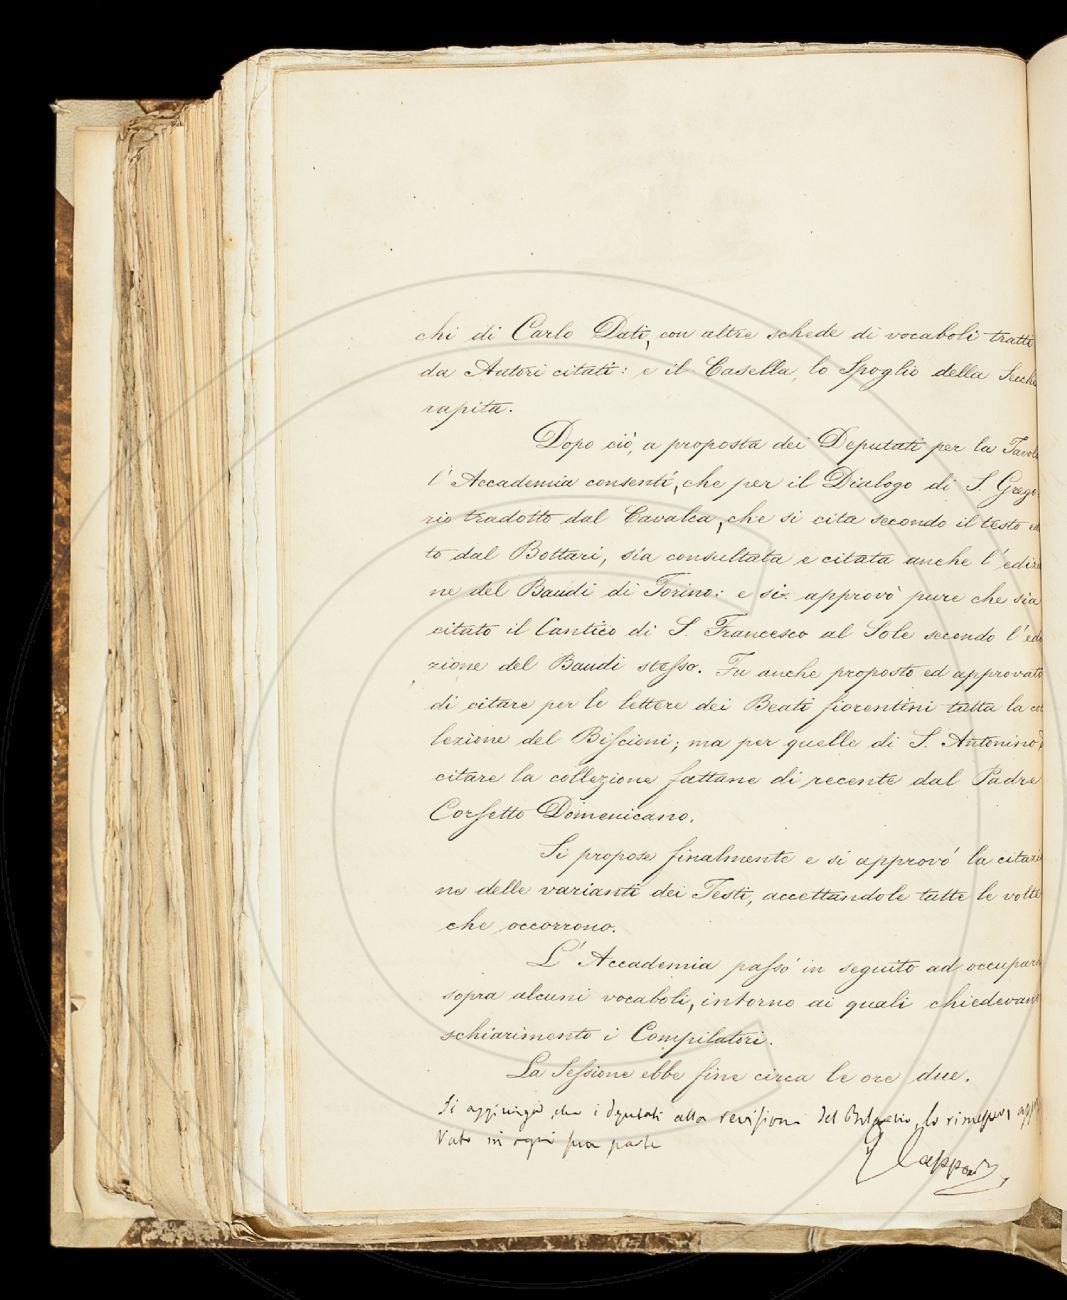 chi di Carlo Dati, con altre schede di vocaboli tratti
da Autori citati: e il Casella, lo Spoglio della Secchia
rapita.
Dopo ciò, a proposta dei Deputati per la Tavola
l'Accademia consentì, che per il Dialogo di S. Grego
rio tradotto dal Cavalca, che si cita secondo il testo
to dal Bottari, sia consultata e citata anche l'edizi
ne del Baudi di Torino: e si approvò pure che sia
citato il Cantico di S. Francesco al Sole secondo l'edi
zione del Baudi stesso. Fu anche proposto ed approvato
di citare per le lettere dei Beati fiorentini tutta la col
lezione del Biscioni; ma per quelle di S. Antonino
citare la collezione fattane di recente dal Padre
Corsetto Domenicano.
Si propose finalmente e si approvò la citazio
ne delle varianti dei Testi, accettandole tutte le volte
che occorrono.
L'Accademia passò in seguito ad occupare
sopra alcuni vocaboli, intorno ai quali chiedevano
schiarimento i Compilatori.
La Sessione ebbe fine circa le ore due.
Si aggiunge che i Deputati alla revisione del lo
vato in ogni sua parte
Capponi